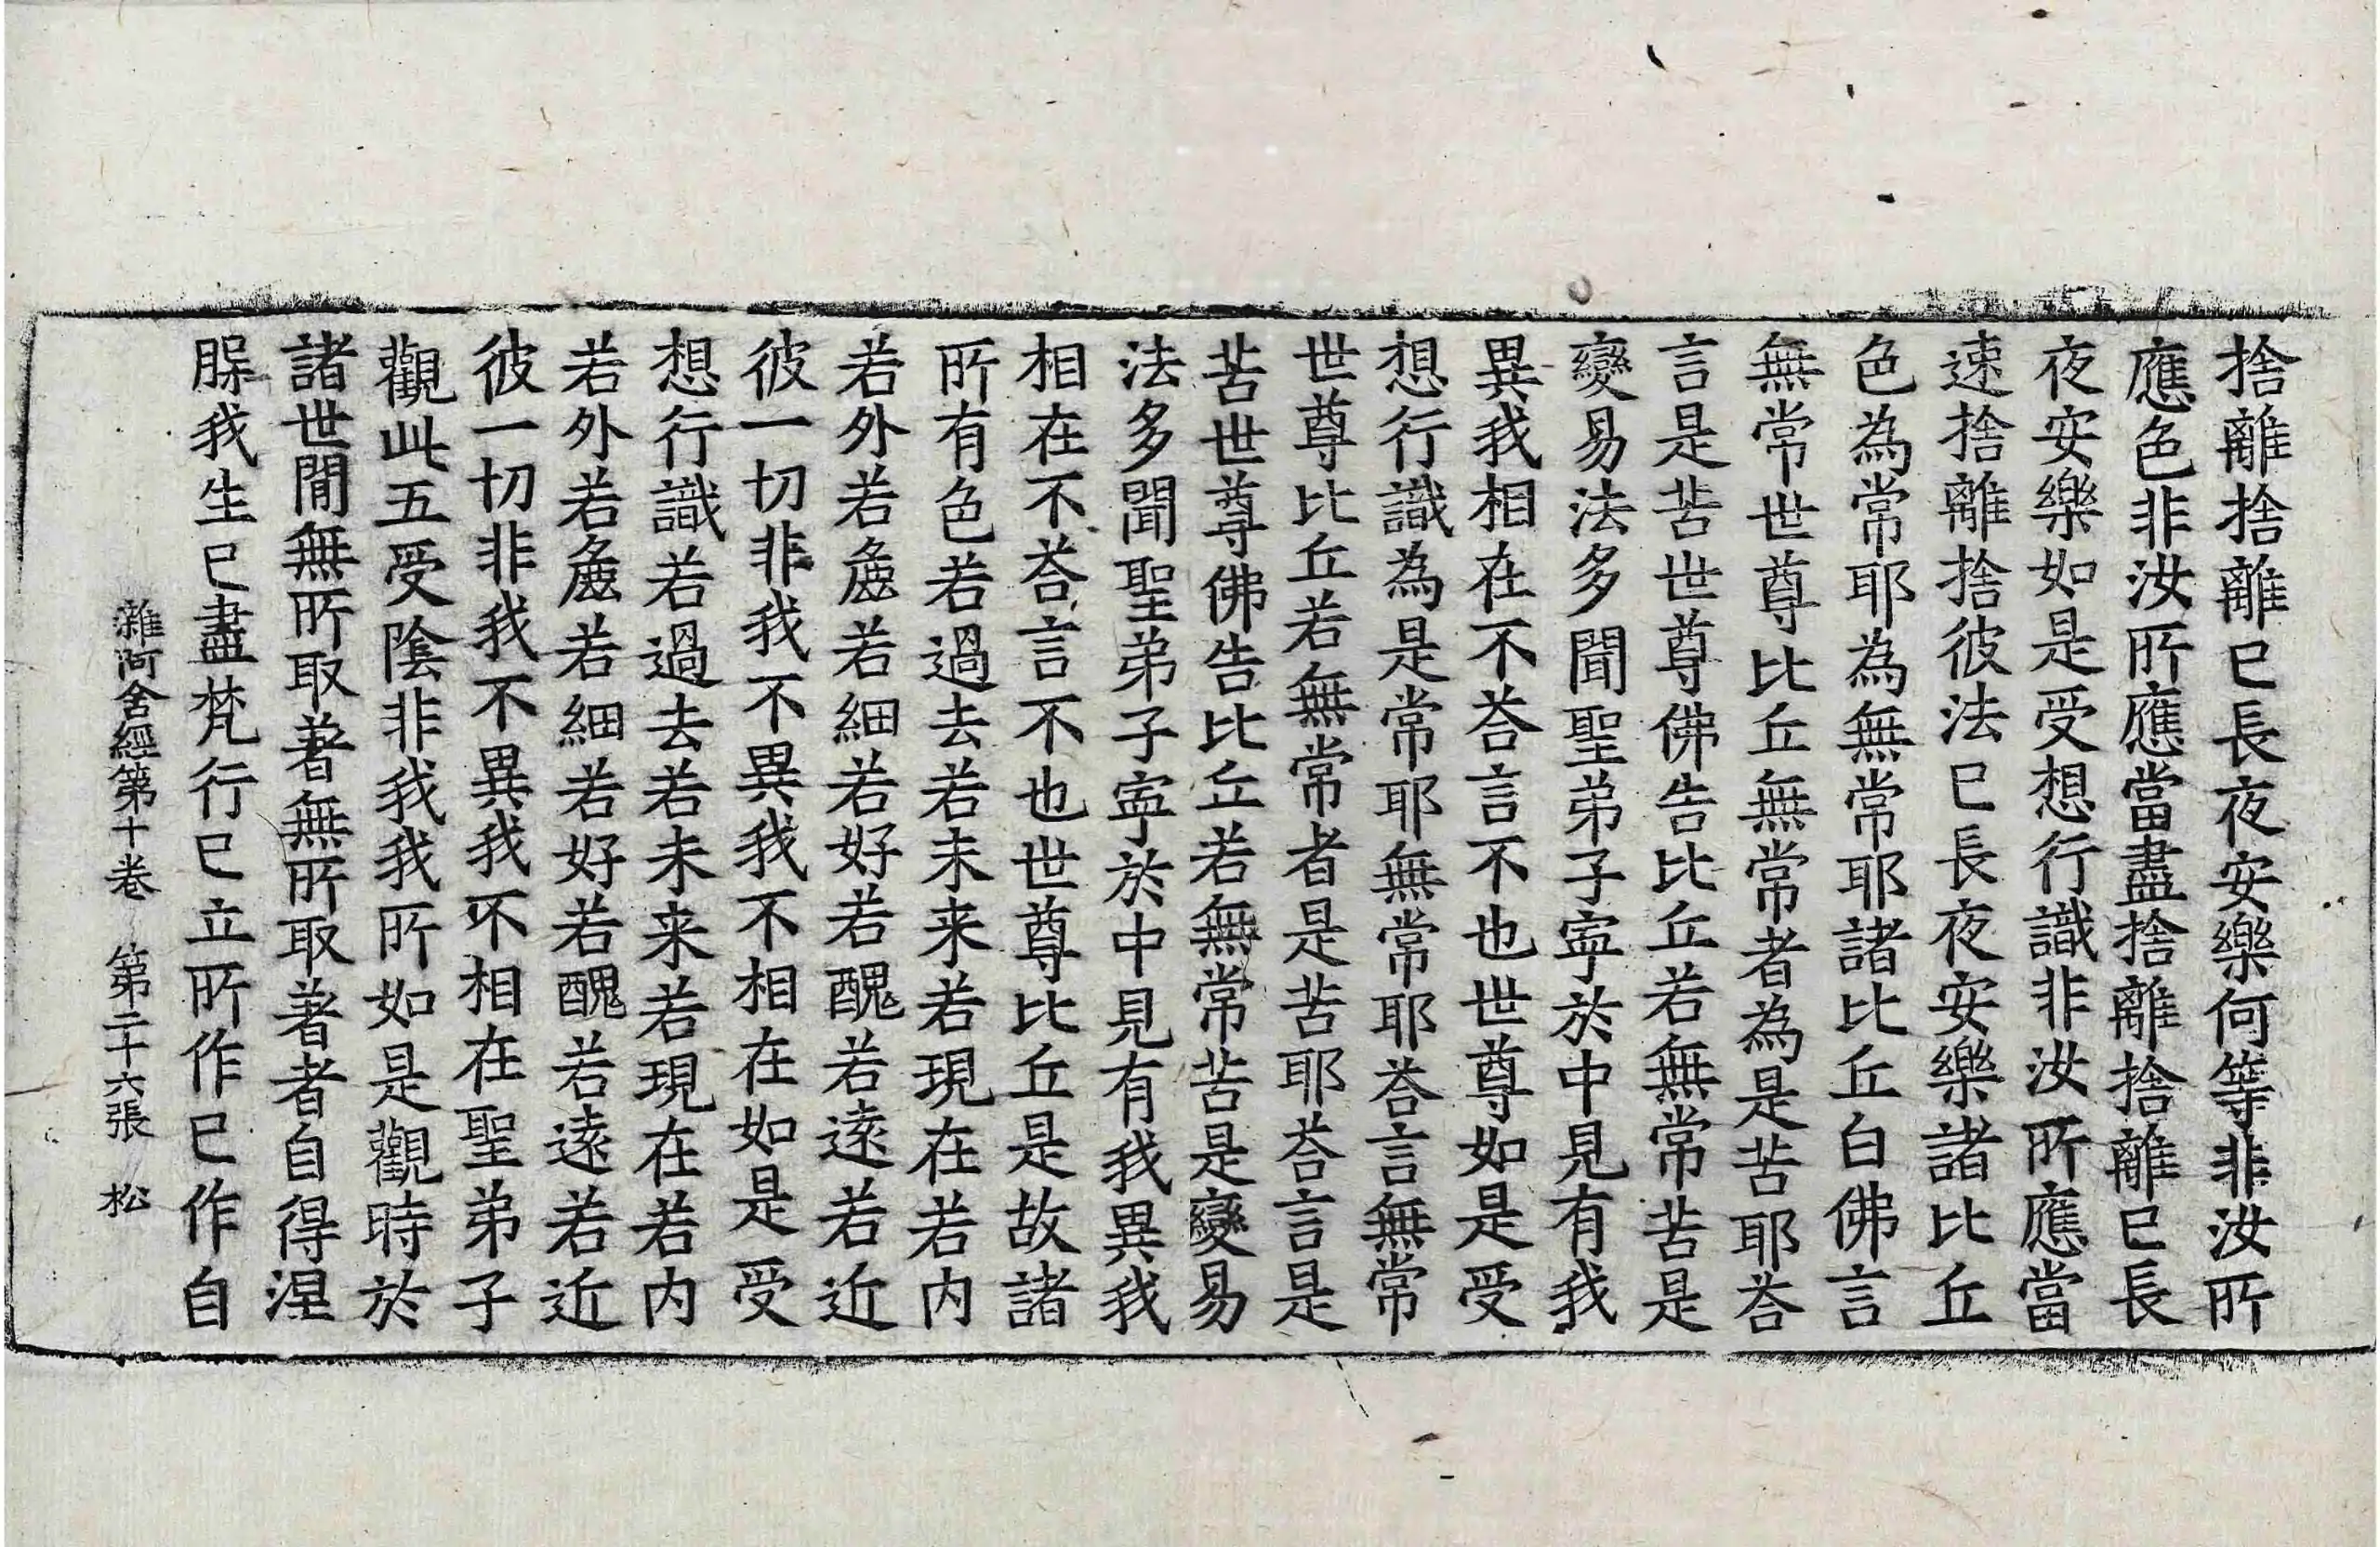 捨離捨離已長夜安樂何等非汝所
應色非汝所應當盡捨離捨離已長
夜安樂如是受想行識非汝所應當
速捨離捨彼法已長夜安樂諸比丘
色為常耶為無常耶諸比丘白佛言
無常世尊比丘無常者為是苦耶荅
言是苦世尊佛告比丘若無常苦是
變易法多聞聖弟子寧於中見有我
異我相在不荅言不也世尊如是受
想行識為是常耶無常耶荅言無常
世尊比丘若無常者是苦耶荅言是
苦世尊佛告比丘若無常苦是變易
法多聞聖弟子寧於中見有我異我
相在不荅言不也世尊比丘是故諸
所有色若過去若未来若現在若内
若外若麁若細若好若醜若遠若近
彼一切非我不異我不相在如是受
想行識若過去若未来若現在若内
若外若麁若細若好若醜若遠若近
彼一切非我不異我不相在聖弟子
觀此五受陰非我我所如是觀時於
諸世閒無所取著無所取著者自得涅
𦙁我生已盡梵行已立所作已作自
雜阿含經第十卷　第二十六張　松